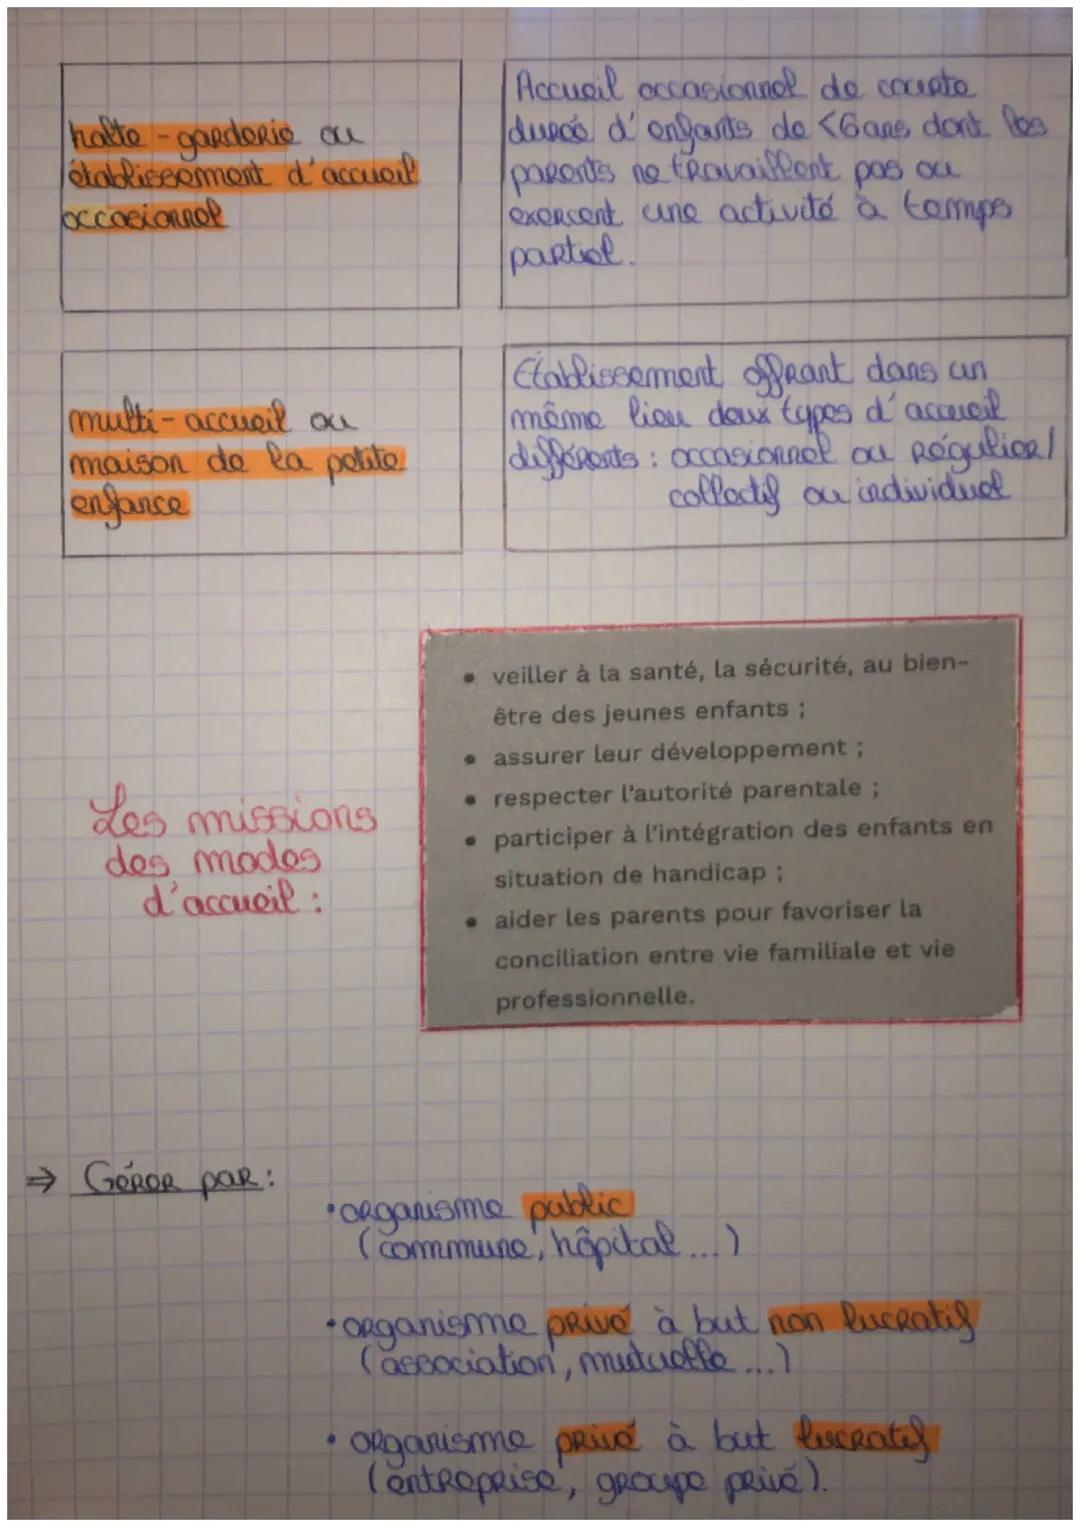 halte-garderie ou
établissement d'accueil
occasionnel
Accueil occasionnel de courte
durée d'enfants de <6ans dont les
parents ne travaillent pas ou
exercent une activité à temps
partiel.
multi-accueil ou
maison de la petite
enfance
Etablissement offrant dans un
même lieu deux types d'accueil
différents : occasionnel ou régulier/
collectif ou individuel
Les missions
des modes
d'accueil :
• veiller à la santé, la sécurité, au bien-
être des jeunes enfants ;
• assurer leur développement ;
• respecter l'autorité parentale ;
• participer à l'intégration des enfants en
situation de handicap ;
• aider les parents pour favoriser la
conciliation entre vie familiale et vie
professionnelle.
⇒ Gérer par :
• organisme public
(commune, hôpital ...)
• organisme privé à but non lucratif
(association, mutuelle ...)
• organisme privé à but lucratif
(entreprise, groupe privé).